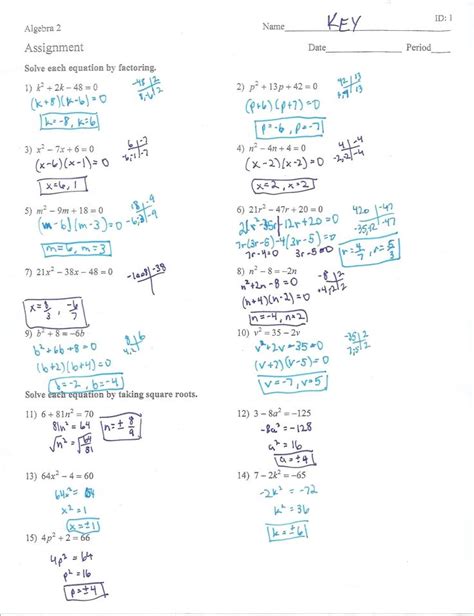 Algebra 2
Name KEY
ID: 1
Assignment
Date Period
Solve each equation by factoring.
1) k² + 2k − 48 = 0
-48 | 2
8,-6 | 2
(k+8)(k-6)=0
k=-8, k=6
2) p² + 13p + 42 = 0
42 | 13
(p+6)(p+7)=0
p=-6, p=-7
3) x² − 7x + 6 = 0
6 | -7
-6,-1 | -7
(x-6)(x-1)=0
x=6, 1
4) n² − 4n + 4 = 0
4 | -4
-2,-2 | -4
(x-2)(x-2)=0
x=2, x=2
5) m² − 9m + 18 = 0
18 | -9
-6,-3 | -9
(m-6)(m-3)=0
m=6, m=3
6) 21r² − 47r + 20 = 0
420 | -47
-35,-12 | -47
21r²-35r-12r+20=0
7r(3r-5)-4(3r-5)=0
7r-4=0 3r-5=0
r=4/7, r=5/3
7) 21x² − 38x − 48 = 0
-1008 | -38
x = 8/3, -6/7
8) n² − 8 = −2n
-8 | 2
+4,-2 | 2
n²+2n-8=0
(n+4)(n-2)=0
n=-4, n=2
9) b² + 8 = −6b
8 | 6
4,2 |
b²+6b+8=0
(b+2)(b+4)=0
b=-2, b=-4
10) v² = 35 − 2v
-35 | 2
7,-5 | 2
v²+2v-35=0
(v+7)(v-5)=0
v=-7, v=5
Solve each equation by taking square roots.
11) 6 + 81n² = 70
81n² = 64
√n² = √64/81
n = ± 8/9
12) 3 − 8a² = −125
-8a² = -128
a² = 16
a = ±4
13) 64x² − 4 = 60
64x² = 64
x² = 1
x = ±1
14) 7 − 2k² = −65
-2k² = -72
k² = 36
k = ±6
15) 4p² + 2 = 66
4p² = 64
p² = 16
p = ±4